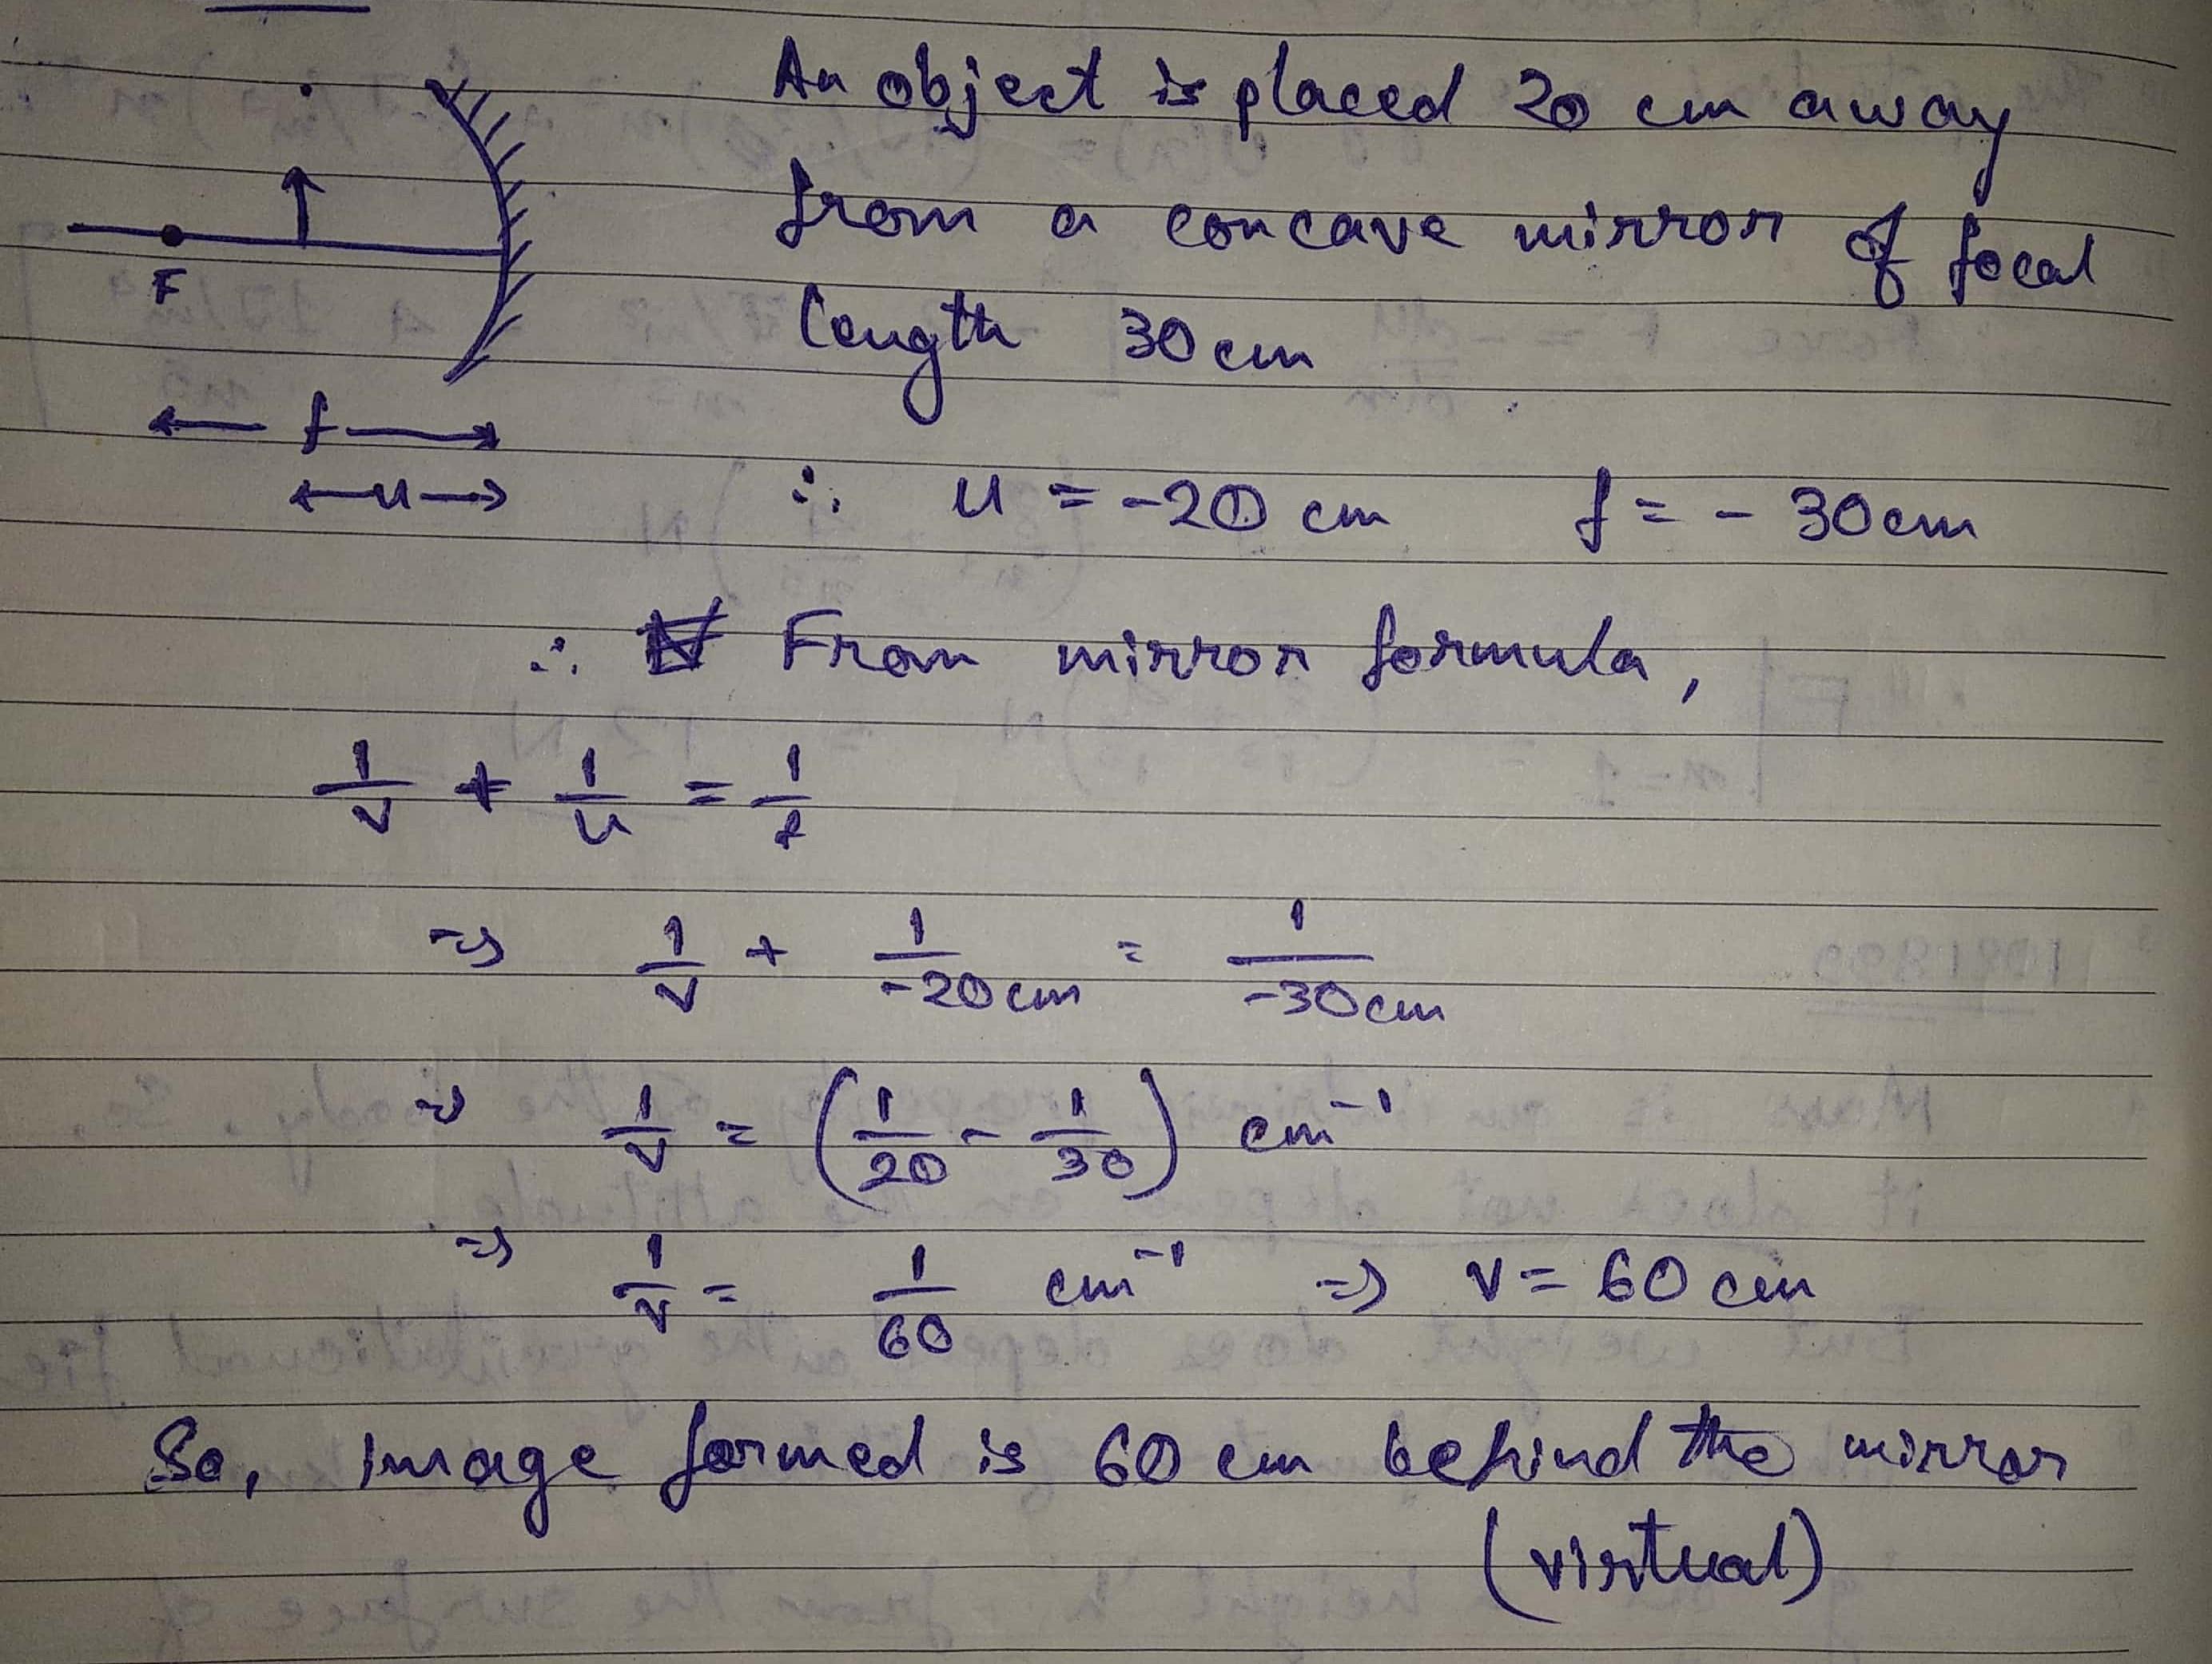 An object is placed 20 cm away
from a concave mirror of focal
length 30 cm
F
← f →
← u →
∴ u = -20 cm f = - 30 cm
∴ From mirror formula,
1/v + 1/u = 1/f
⇒ 1/v + 1/-20 cm = 1/-30 cm
⇒ 1/v = (1/20 - 1/30) cm⁻¹
⇒ 1/v = 1/60 cm⁻¹ ⇒ v = 60 cm
So, image formed is 60 cm behind the mirror
(virtual)